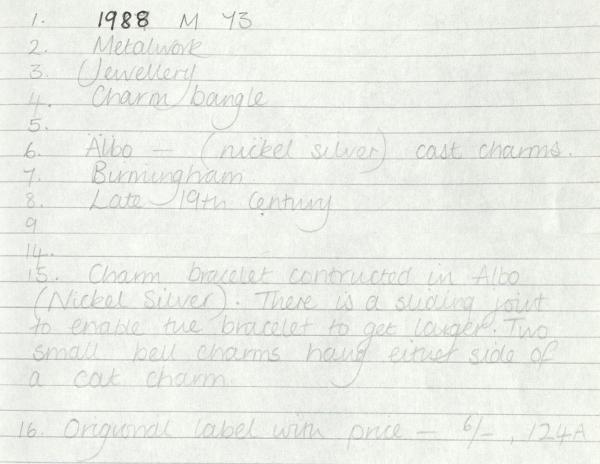 1. 1988 M Y3
2. Metalwork
3. Jewellery
4. Charm bangle
5.
6. Albo - (nickel silver) cast charms.
7. Birmingham
8. Late 19th Century
9
14.
15. Charm bracelet contructed in Albo
(Nickel Silver). There is a sliding joint
to enable the bracelet to get larger. Two
small bell charms hang either side of
a cat charm
16. Origional label with price - 6/-, 124A